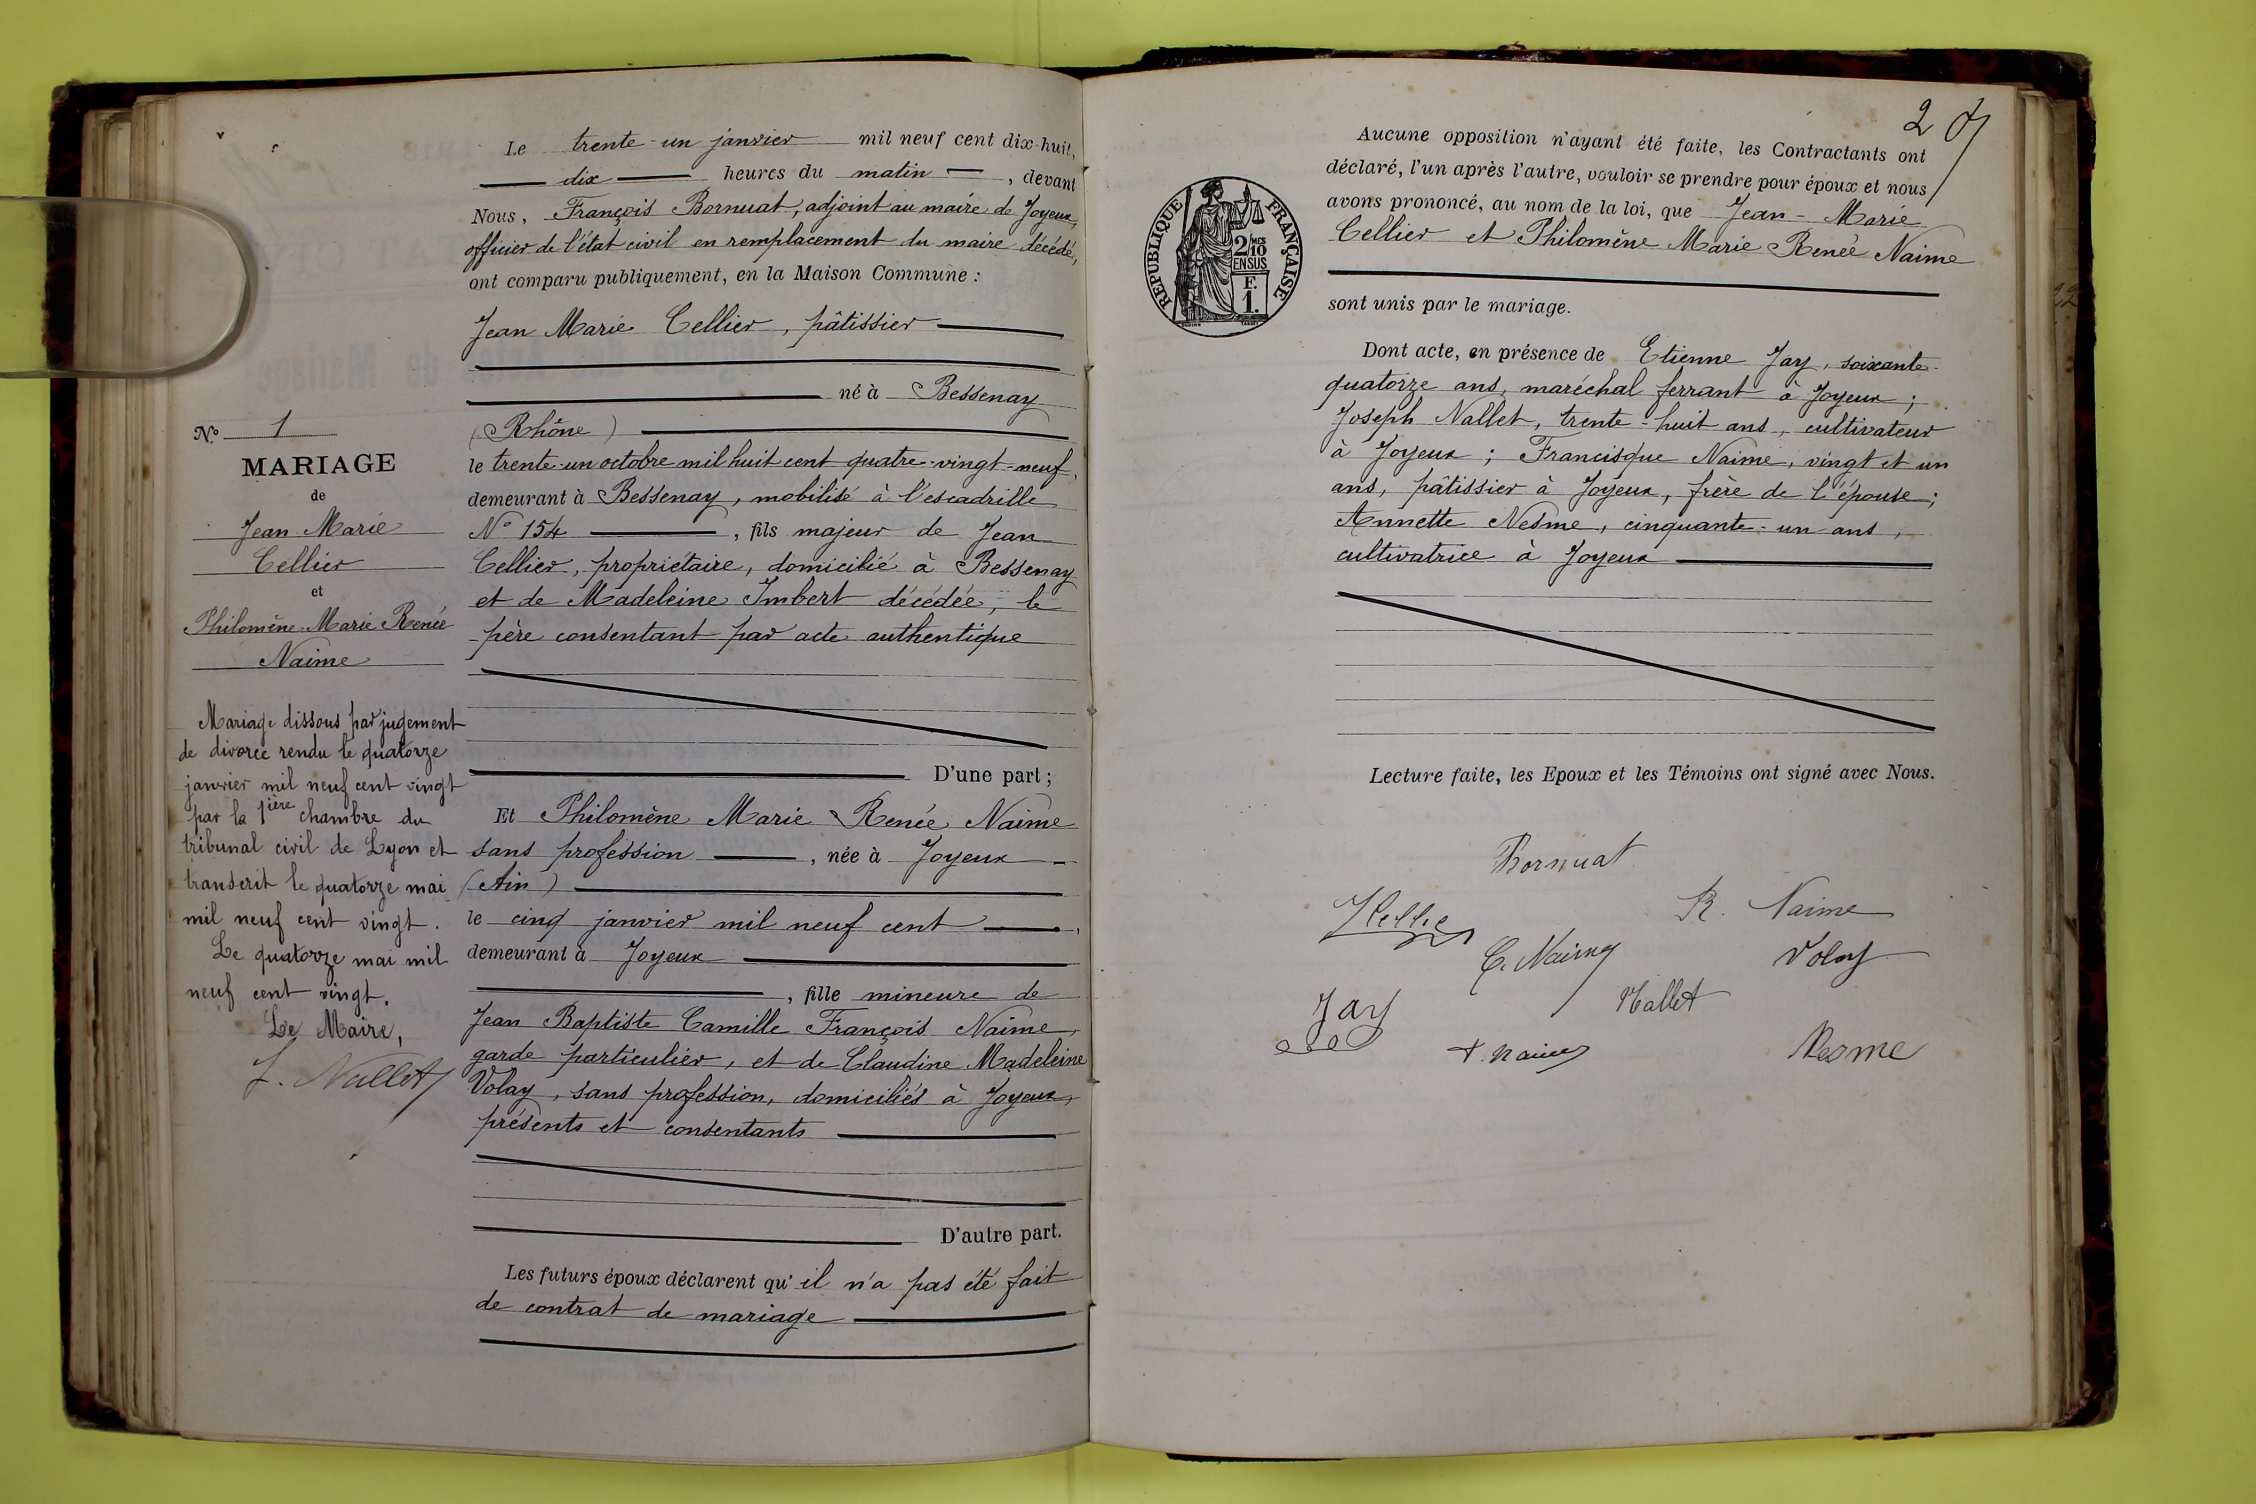 N° 1
MARIAGE
de
Jean Marie
Cellier
et
Philomène Marie Renée
Naime
Mariage dissous par jugement
de divorce rendu le quatorze
janvier mil neuf cent vingt
par la 1ière chambre du
tribunal civil de Lyon et
transcrit le quatorze mai
mil neuf cent vingt.
Le quatorze mai mil
neuf cent vingt.
Le Maire,
J. Nallet
Le trente-un janvier mil neuf cent dix-huit,
dix heures du matin, devant
Nous, François Bornuat, adjoint au maire de Joyeux,
officier de l'état civil en remplacement du maire décédé,
ont comparu publiquement, en la Maison Commune :
Jean Marie Cellier, pâtissier
né à Bessenay
(Rhône)
le trente-un octobre mil huit cent quatre-vingt-neuf,
demeurant à Bessenay, mobilisé à l'escadrille
N° 154, fils majeur de Jean
Cellier, propriétaire, domicilié à Bessenay
et de Madeleine Imbert décédée, le
père consentant par acte authentique
D'une part ;
Et Philomène Marie Renée Naime
sans profession, née à Joyeux
(Ain)
le cinq janvier mil neuf cent,
demeurant à Joyeux
, fille mineure de
Jean Baptiste Camille François Naime,
garde particulier, et de Claudine Madeleine
Volay, sans profession, domiciliés à Joyeux,
présents et consentants
D'autre part.
Les futurs époux déclarent qu'il n'a pas été fait
de contrat de mariage
2
Aucune opposition n'ayant été faite, les Contractants ont
déclaré, l'un après l'autre, vouloir se prendre pour époux et nous
avons prononcé, au nom de la loi, que Jean-Marie
Cellier et Philomène Marie Renée Naime
sont unis par le mariage.
RÉPUBLIQUE FRANÇAISE
2/10 MES
EN SUS
F.
1.
Dont acte, en présence de Etienne Jay, soixante-
quatorze ans, maréchal ferrant à Joyeux ;
Joseph Nallet, trente-huit ans, cultivateur
à Joyeux ; Francisque Naime, vingt et un
ans, pâtissier à Joyeux, frère de l'épouse ;
Annette Nesme, cinquante-un ans,
cultivatrice à Joyeux
Lecture faite, les Epoux et les Témoins ont signé avec Nous.
Bornuat
R. Naime
C. Naime
Volay
Jay
Nallet
F. Naime
Nesme